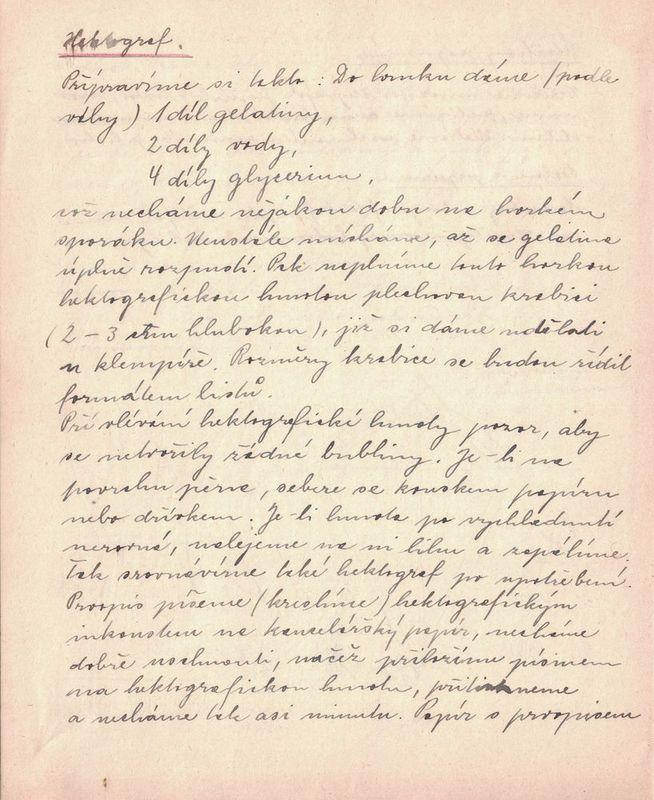 Hektograf.
Připravíme si takto: Do hrnku dáme /podle
váhy) 1 díl gelatiny,
2 díly vody,
4 díly glycerinu,
což necháme nějakou dobu na horkém
sporáku. Neustále mícháme, až se gelatina
úplně rozpustí. Pak naplníme touto horkou
hektografickou hmotou plechovou krabici
(2 – 3 ctm hlubokou), již si dáme udělati
u klempíře. Rozměry krabice se budou řídit
formátem listů.
Při vlévání hektografické hmoty pozor, aby
se netvořily žádné bubliny. Je-li na
povrchu pěna, sebere se kouskem papíru
nebo dřívkem. Je-li hmota po vychladnutí
nerovná, nalejeme na ni lihu a zapálíme.
Tak srovnáváme také hektograf po upotřebení.
Prvopis píšeme (kreslíme) hektografickým
inkoustem na kancelářský papír, necháme
dobře uschnouti, načež přiložíme písmem
na hektografickou hmotu, přitiskneme
a necháme tak asi minutu. Papír s prvopisem